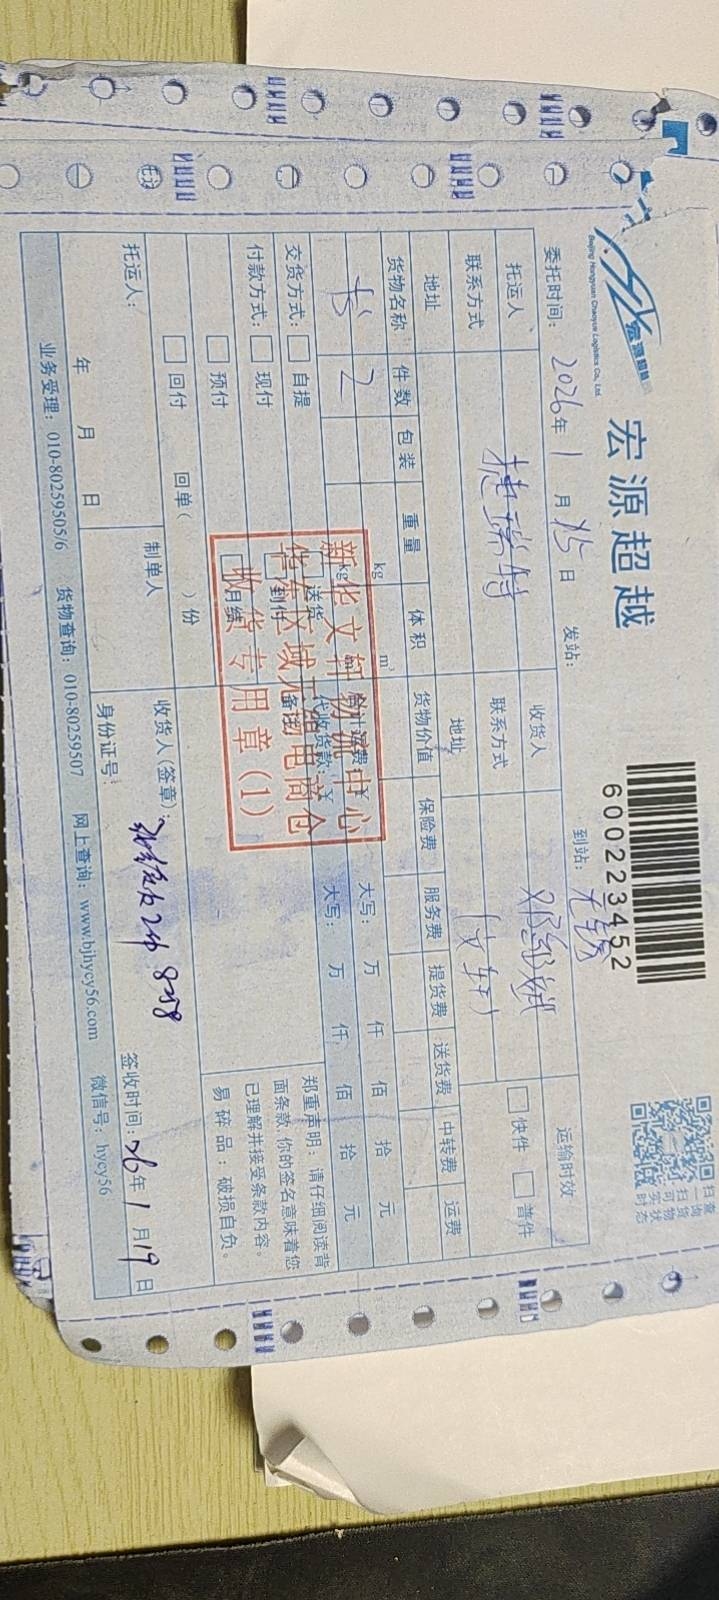 宏源超越
Beijing Hongyuan Chaoyue Logistics Co., Ltd.
宏源超越
6002234452
扫一扫 查询货物 实时状态
委托时间: 2026年 1月 15日 发站: 到站: 无锡
托运人 捷瑞特 收货人 运输时效
联系方式 联系方式 快件 普件
地址 地址 (文轩)
货物名称 件数 包装 重量 体积 货物价值 保险费 服务费 提货费 送货费 中转费 运费
书 2 kg m³
交货方式: 自提 送货
大写: 万 仟 佰 拾 元
付款方式: 现付 到付 代收货款: ¥ 大写: 万 仟 佰 拾 元
预付 月结 备注
回付 回单( )份
郑重声明: 请仔细阅读背面条款,你的签名意味着您已理解并接受条款内容。
易碎品: 破损自负。
新华文轩物流中心
华东区域无锡电商仓
收货专用章(1)
托运人: 制单人 收货人(签章): 2件 8258
年 月 日 身份证号: 签收时间: 26年 1月 19日
业务受理: 010-80259505/6 货物查询: 010-80259507 网上查询: www.bjhycy56.com 微信号: hycy56